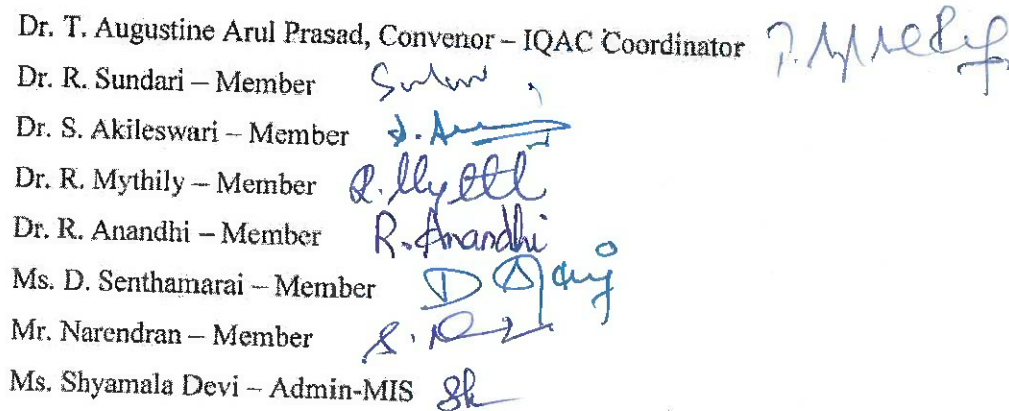 Dr. T. Augustine Arul Prasad, Convenor – IQAC Coordinator
Dr. R. Sundari – Member
Dr. S. Akileswari – Member
Dr. R. Mythily – Member
Dr. R. Anandhi – Member R. Anandhi
Ms. D. Senthamarai – Member
Mr. Narendran – Member
Ms. Shyamala Devi – Admin-MIS